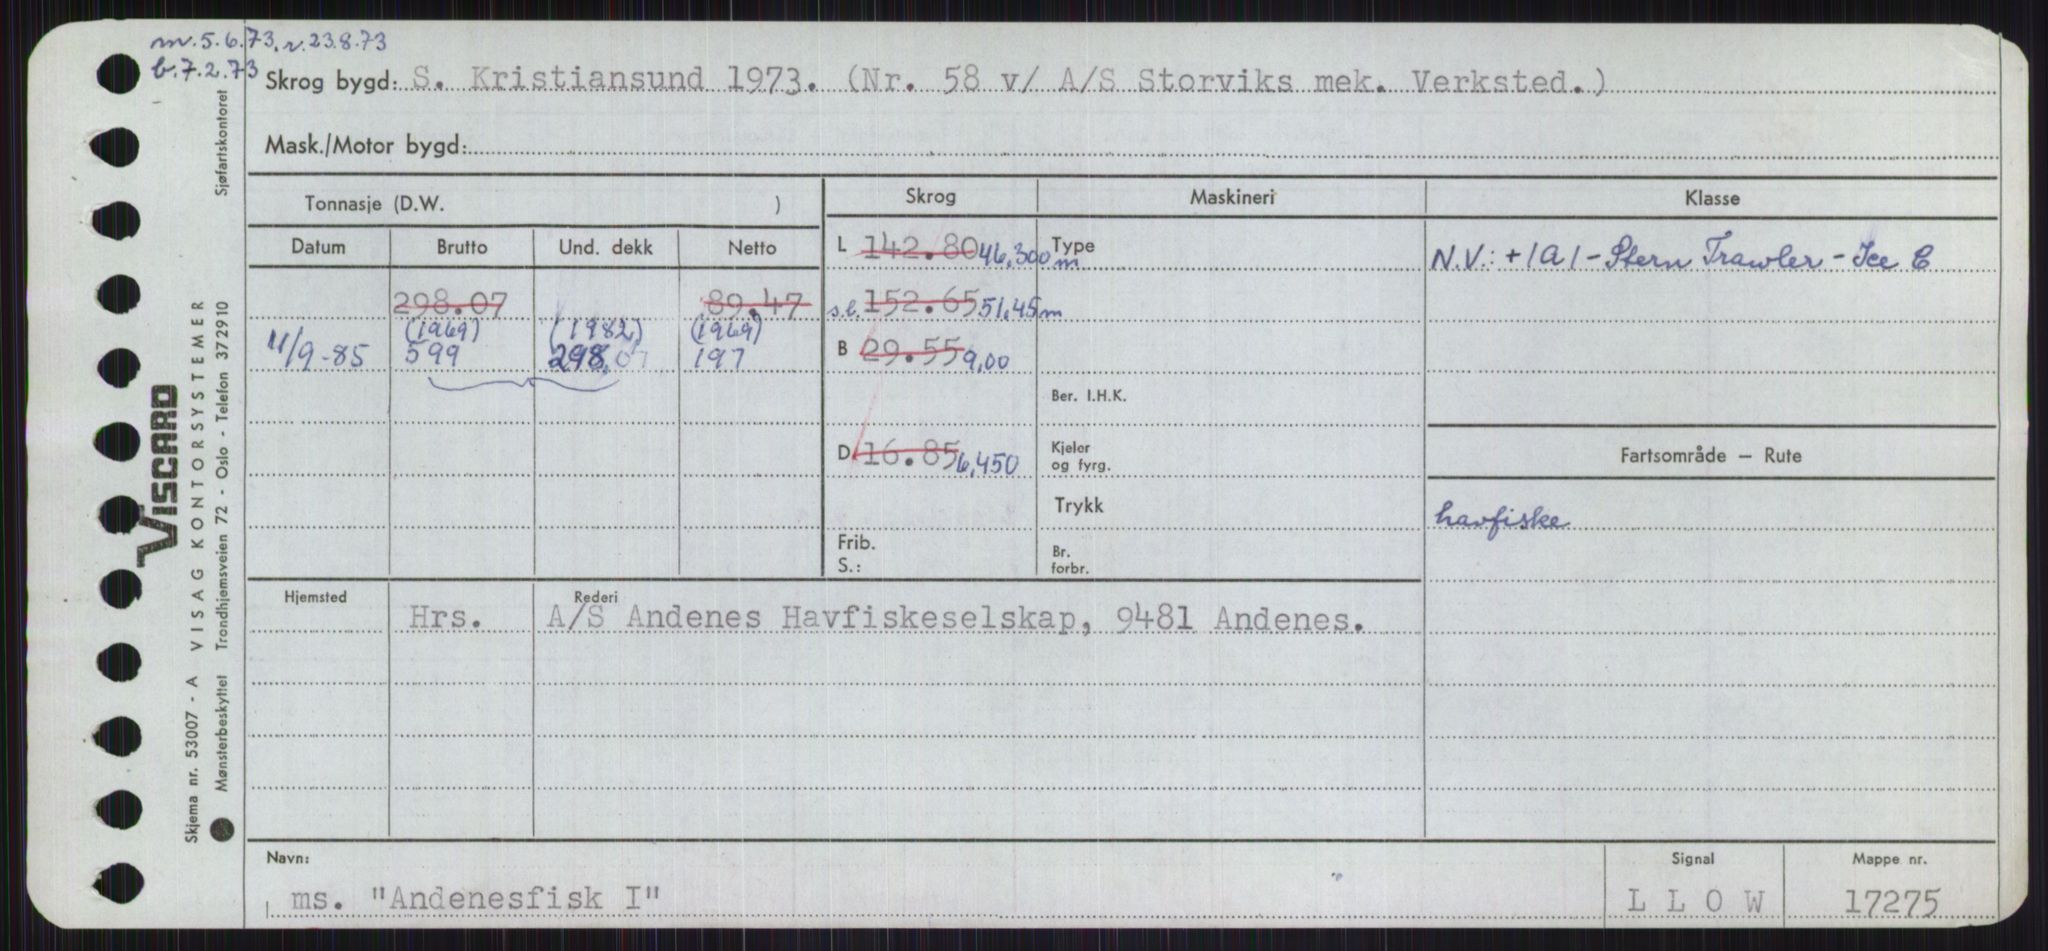 m. 5.6.73, r. 23.8.73
b. 7.2.73
Skrog bygd: S. Kristiansund 1973. (Nr. 58 v/ A/S Storviks mek. Verksted.)
Mask./Motor bygd:
Tonnasje (D.W. )
Skrog Maskineri Klasse
Datum Brutto Und. dekk Netto
L 142.80 46,300 m Type
N.V.: +1A1 - Stern Trawler - Ice C
298.07 89.47
s.l. 152.65 51,45 m
(1969) (1982) (1969)
11/9-85 599 298,07 197
B 29.55 9,00
Ber. I.H.K.
D. 16.85 6,450
Kjeler
og fyrg.
Fartsområde – Rute
Trykk
havfiske
Frib.
S.:
Br.
forbr.
Hjemsted Rederi
Hrs. A/S Andenes Havfiskeselskap, 9481 Andenes.
Navn: Signal Mappe nr.
ms. "Andenesfisk I" L L O W 17275
Skjema nr. 53007 - A VISAG KONTORSYSTEMER
Mønsterbeskyttet Trondhjemsveien 72 - Oslo - Telefon 372910 Sjøfartskontoret
VISCARD